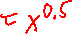 τ x^0.5